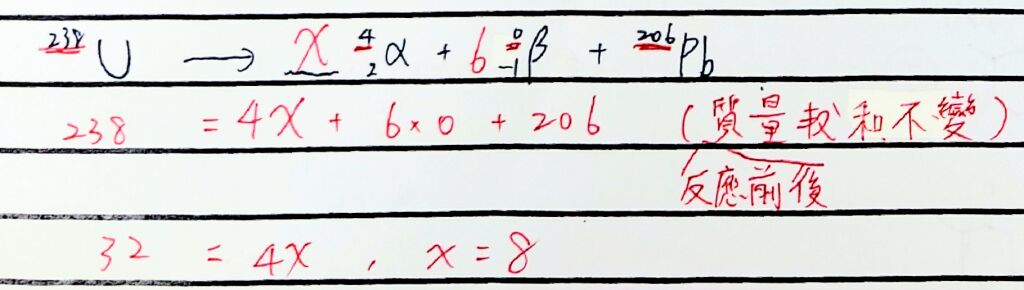 ²³⁸U → X ⁴₂α + 6 ⁰₋₁β + ²⁰⁶Pb
238 = 4X + 6×0 + 206 (質量數和不變)
反應前後
32 = 4X , X = 8